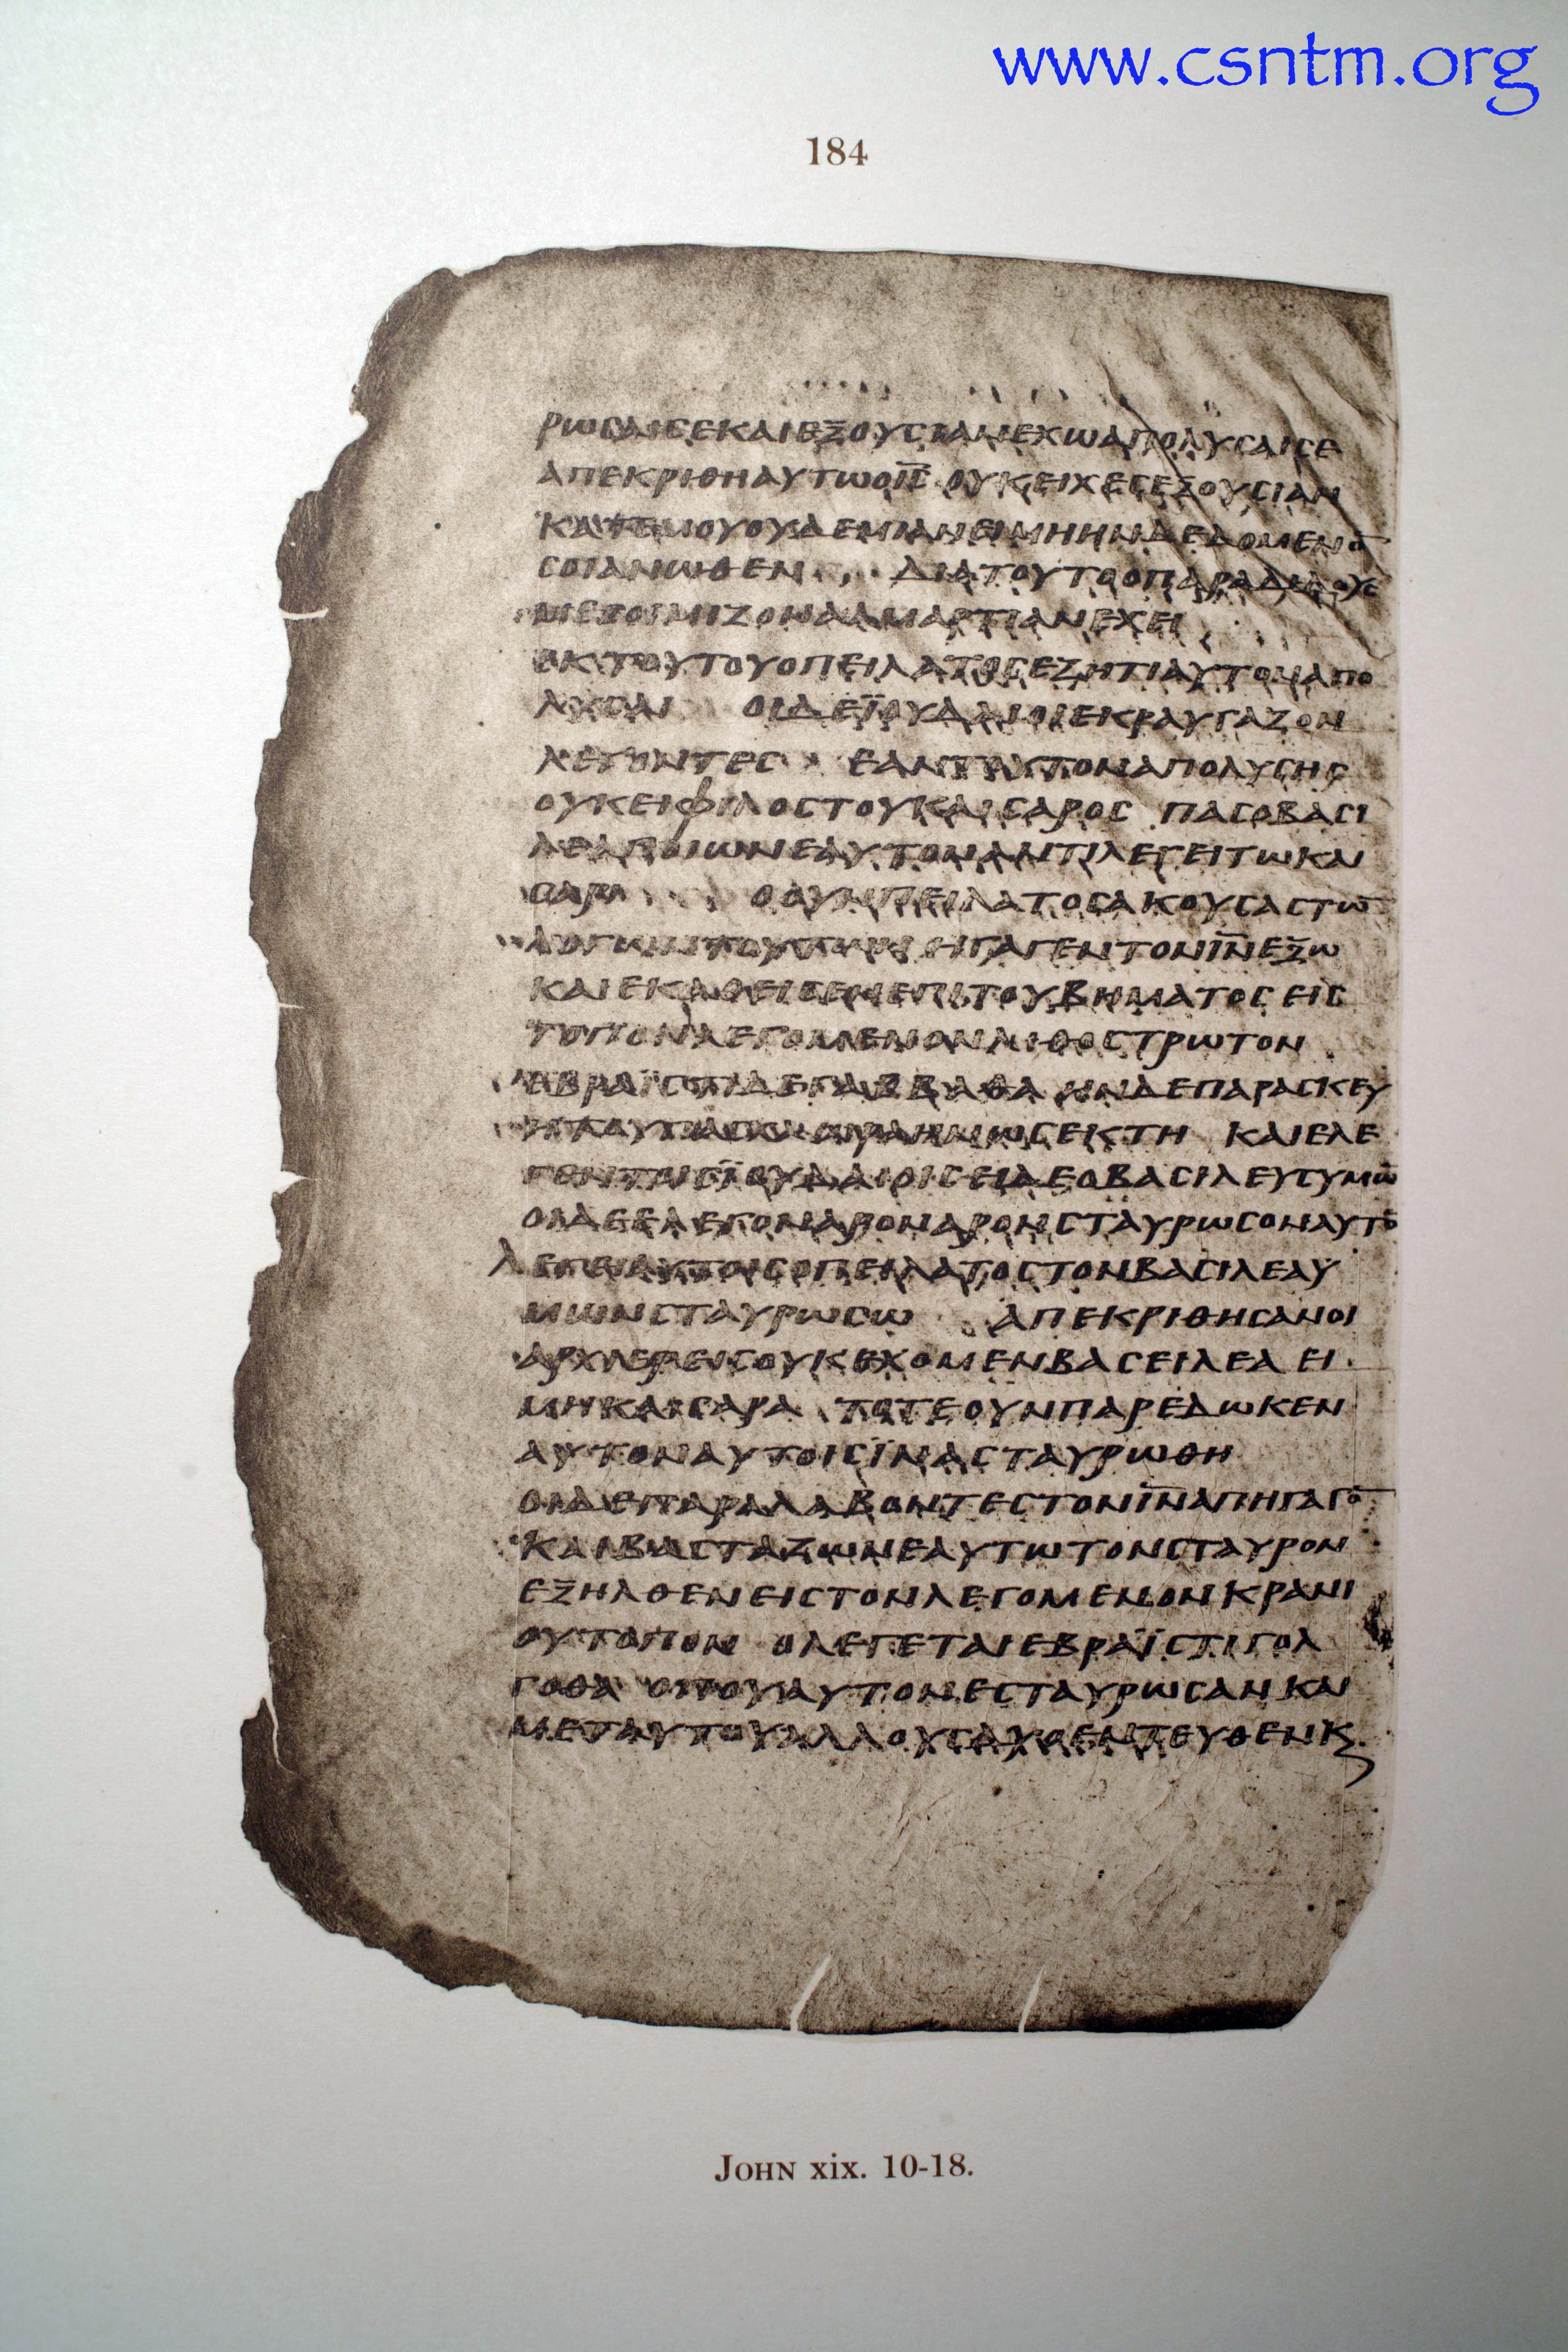 www.csntm.org
184
ΡΩCΑΙCΕΚΑΙΕΞΟΥCΙΑΝΕΧΩΑΠΟΛΥCΑΙCΕ
ΑΠΕΚΡΙΘΗΑΥΤΩΟΙ̅C̅ ΟΥΚΕΙΧΕCΕΞΟΥCΙΑΝ
ΚΑΤΕΜΟΥΟΥΔΕΜΙΑΝΕΙΜΗΗΝΔΕΔΟΜΕΝΟ̅
CΟΙΑΝΩΘΕΝ ΔΙΑΤΟΥΤΟΟΠΑΡΑΔΙΔΟΥC
ΜΕCΟΙΜΙΖΟΝΑΑΜΑΡΤΙΑΝΕΧΕΙ
ΕΚΤΟΥΤΟΥΟΠΕΙΛΑΤΟCΕΖΗΤΙΑΥΤΟΝΑΠΟ
ΛΥCΑΙ ΟΙΔΕΪΟΥΔΑΙΟΙΕΚΡΑΥΓΑΖΟΝ
ΛΕΓΟΝΤΕC ΕΑΝΤΟΥΤΟΝΑΠΟΛΥCΗC
ΟΥΚΕΙΦΙΛΟCΤΟΥΚΑΙCΑΡΟC ΠΑCΟΒΑCΙ
ΛΕΑΠΟΙΩΝΕΑΥΤΟΝΑΝΤΙΛΕΓΕΙΤΩΚΑΙ
CΑΡΙ ΟΟΥΝΠΕΙΛΑΤΟCΑΚΟΥCΑCΤΩ̅
ΛΟΓΩΝΤΟΥΤΩΝ ΗΓΑΓΕΝΤΟΝΙ̅Ν̅ΕΞΩ
ΚΑΙΕΚΑΘΕΙCΕΝΕΠΙΤΟΥΒΗΜΑΤΟCΕΙC
ΤΟΠΟΝΛΕΓΟΜΕΝΟΝΛΙΘΟCΤΡΩΤΟΝ
ΕΒΡΑΪCΤΙΔΕΓΑΒΒΑΘΑ ΗΝΔΕΠΑΡΑCΚΕΥ
ΗΤΟΥΠΑCΧΑ ΩΡΑΗΝΩCΕΚΤΗ ΚΑΙΕΛΕ
ΓΕΝΤΟΙCΪΟΥΔΑΙΟΙCΕΙΔΕΟΒΑCΙΛΕΥCΥΜΩ̅
ΟΙΔΕΕΛΕΓΟΝΑΡΟΝΑΡΟΝCΤΑΥΡΩCΟΝΑΥΤΟ̅
ΛΕΓΕΙΑΥΤΟΙCΟΠΕΙΛΑΤΟCΤΟΝΒΑCΙΛΕΑΥ
ΜΩΝCΤΑΥΡΩCΩ ΑΠΕΚΡΙΘΗCΑΝΟΙ
ΑΡΧΙΕΡΕΙCΟΥΚΕΧΟΜΕΝΒΑCΕΙΛΕΑΕΙ
ΜΗΚΑΙCΑΡΑ ΤΟΤΕΟΥΝΠΑΡΕΔΩΚΕΝ
ΑΥΤΟΝΑΥΤΟΙCΪΝΑCΤΑΥΡΩΘΗ
ΟΙΔΕΠΑΡΑΛΑΒΟΝΤΕCΤΟΝΙ̅Ν̅ΑΠΗΓΑΓΟ̅
ΚΑΙΒΑCΤΑΖΩΝΕΑΥΤΩΤΟΝCΤΑΥΡΟΝ
ΕΞΗΛΘΕΝΕΙCΤΟΝΛΕΓΟΜΕΝΟΝΚΡΑΝΙ
ΟΥΤΟΠΟΝ ΟΛΕΓΕΤΑΙΕΒΡΑΪCΤΙΓΟΛ
ΓΟΘΑ ΟΠΟΥΑΥΤΟΝΕCΤΑΥΡΩCΑΝΚΑΙ
ΜΕΤΑΥΤΟΥΑΛΛΟΥCΔΥΟΕΝΤΕΥΘΕΝΚ
JOHN xix. 10-18.